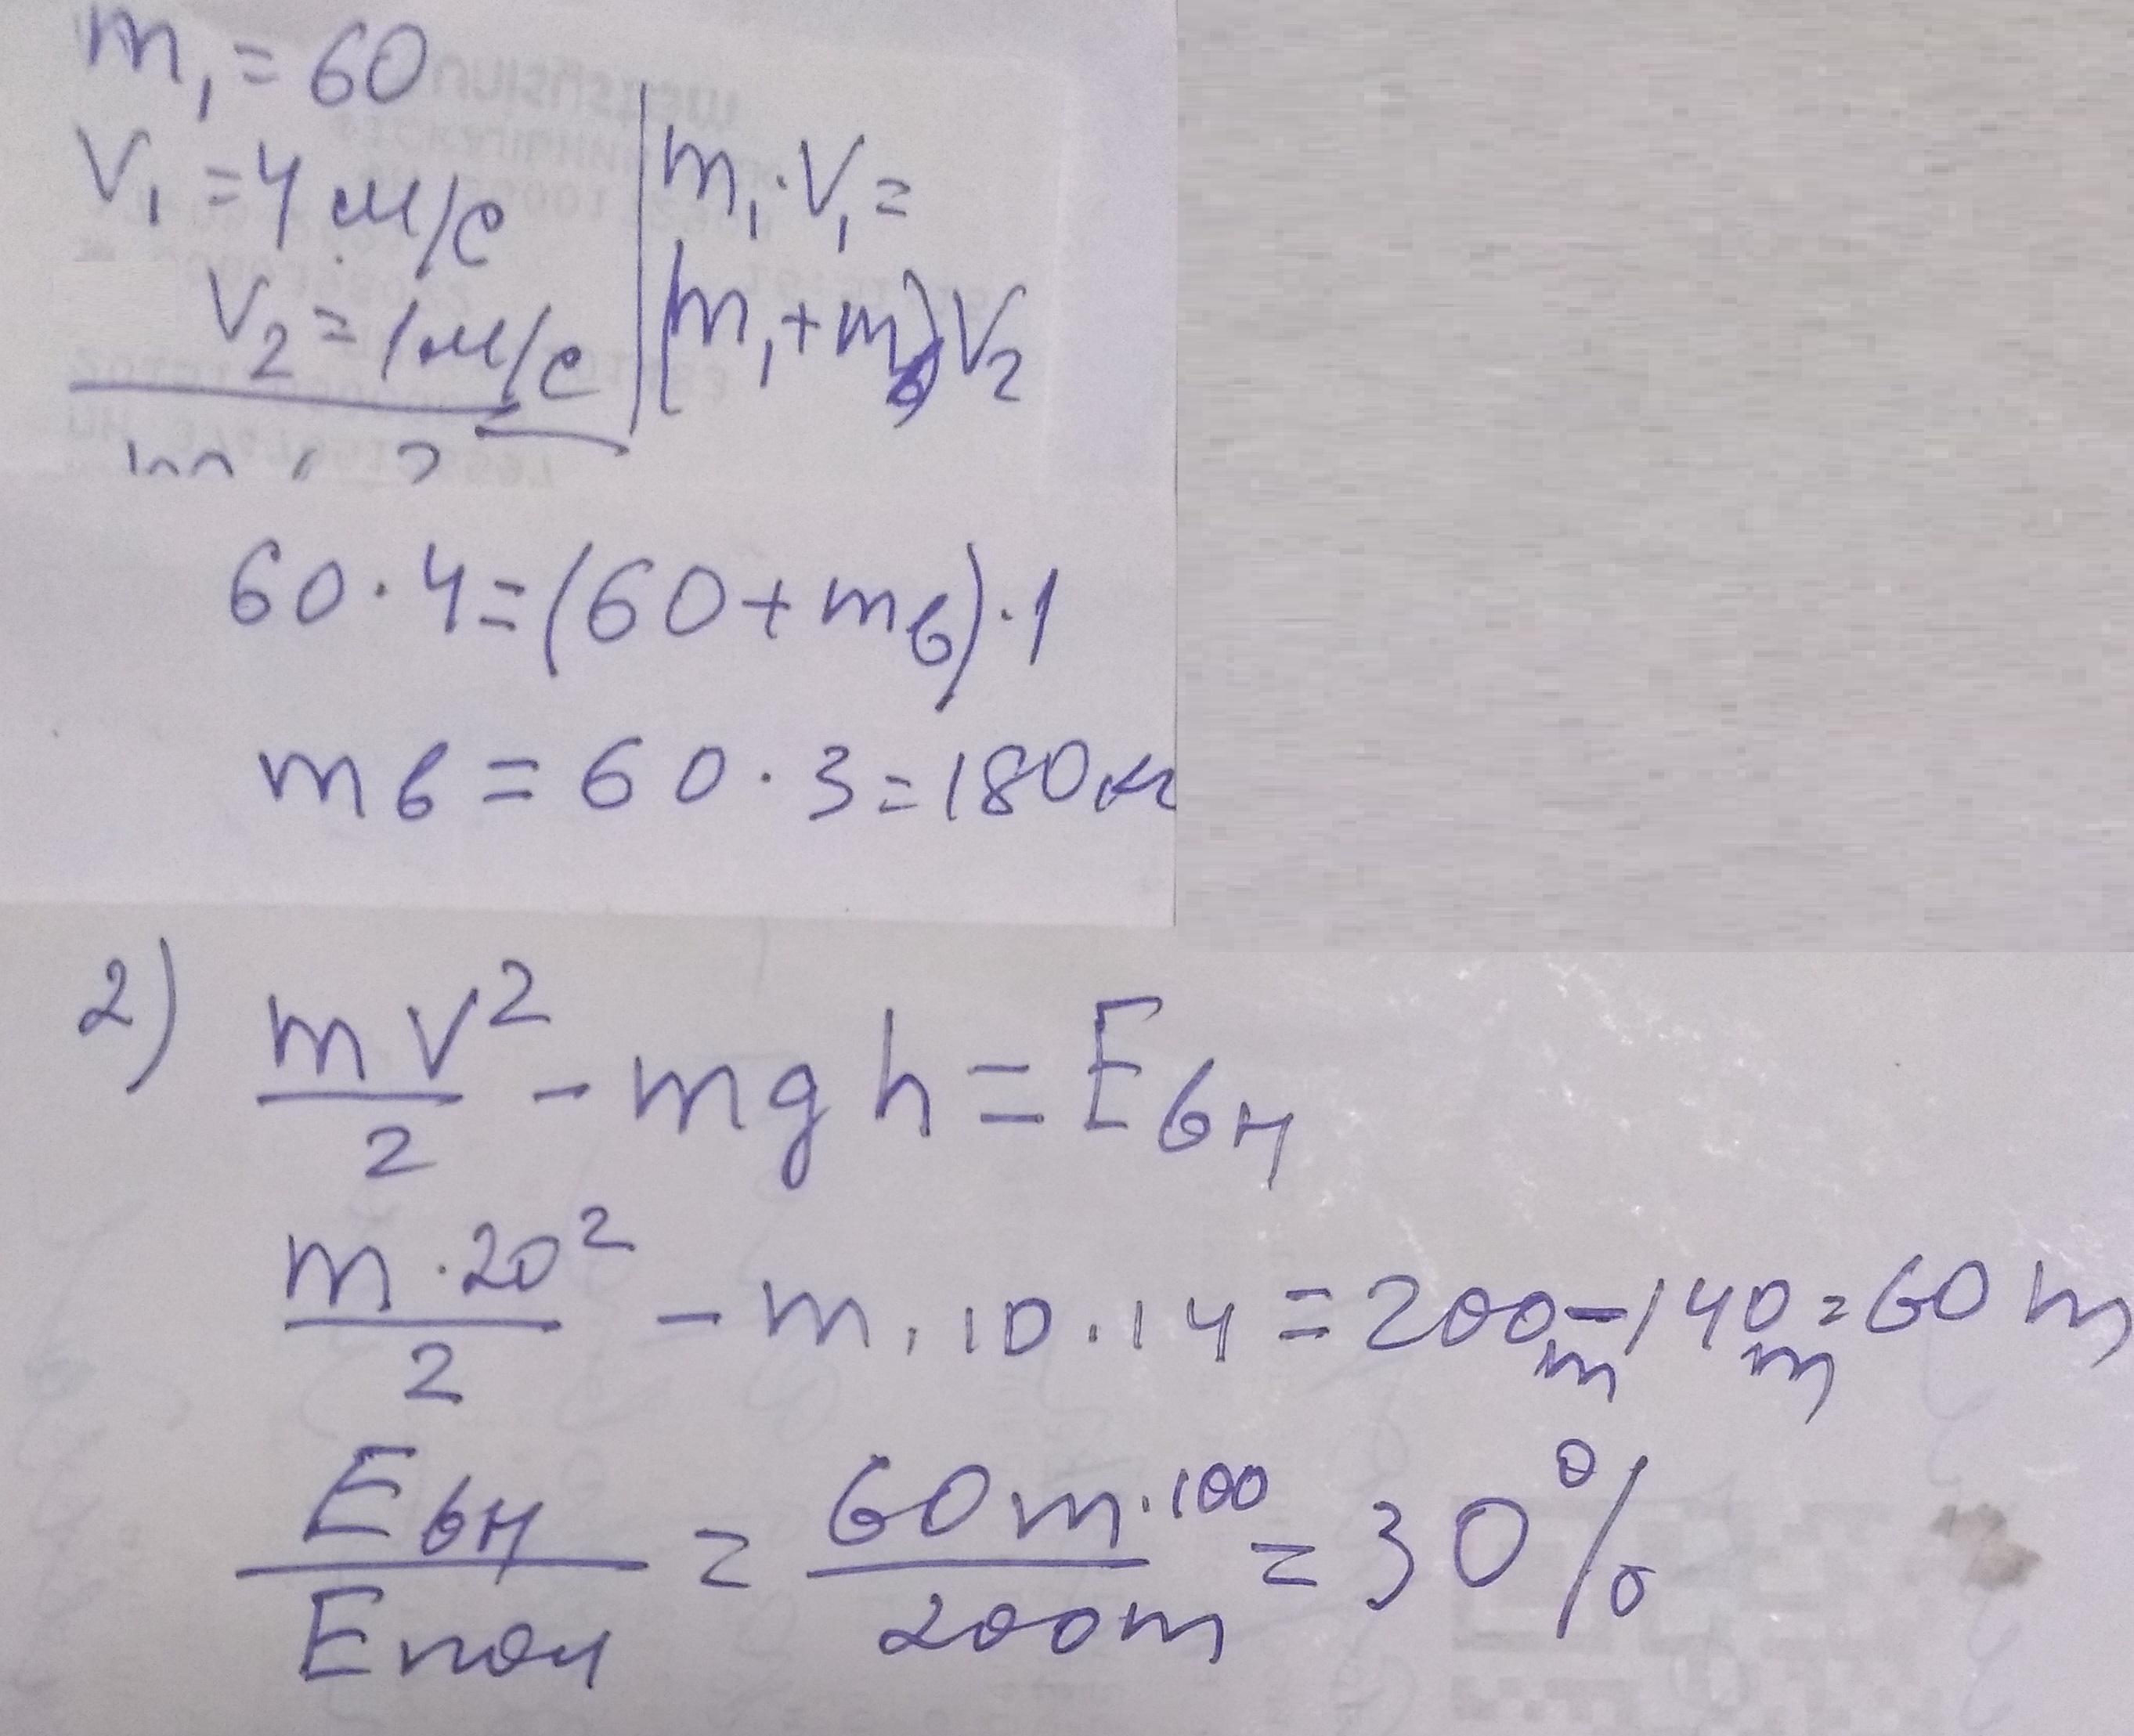 m₁ = 60
V₁ = 4 м/с
V₂ = 1 м/с
m₁ · V₁ =
(m₁ + mв) V₂
60 · 4 = (60 + mв) · 1
mв = 60 · 3 = 180 кг
2) mV²/2 - mgh = Eвн
m · 20²/2 - m · 10 · 14 = 200m - 140m = 60m
Eвн/Eпол = 60m · 100/200m = 30%